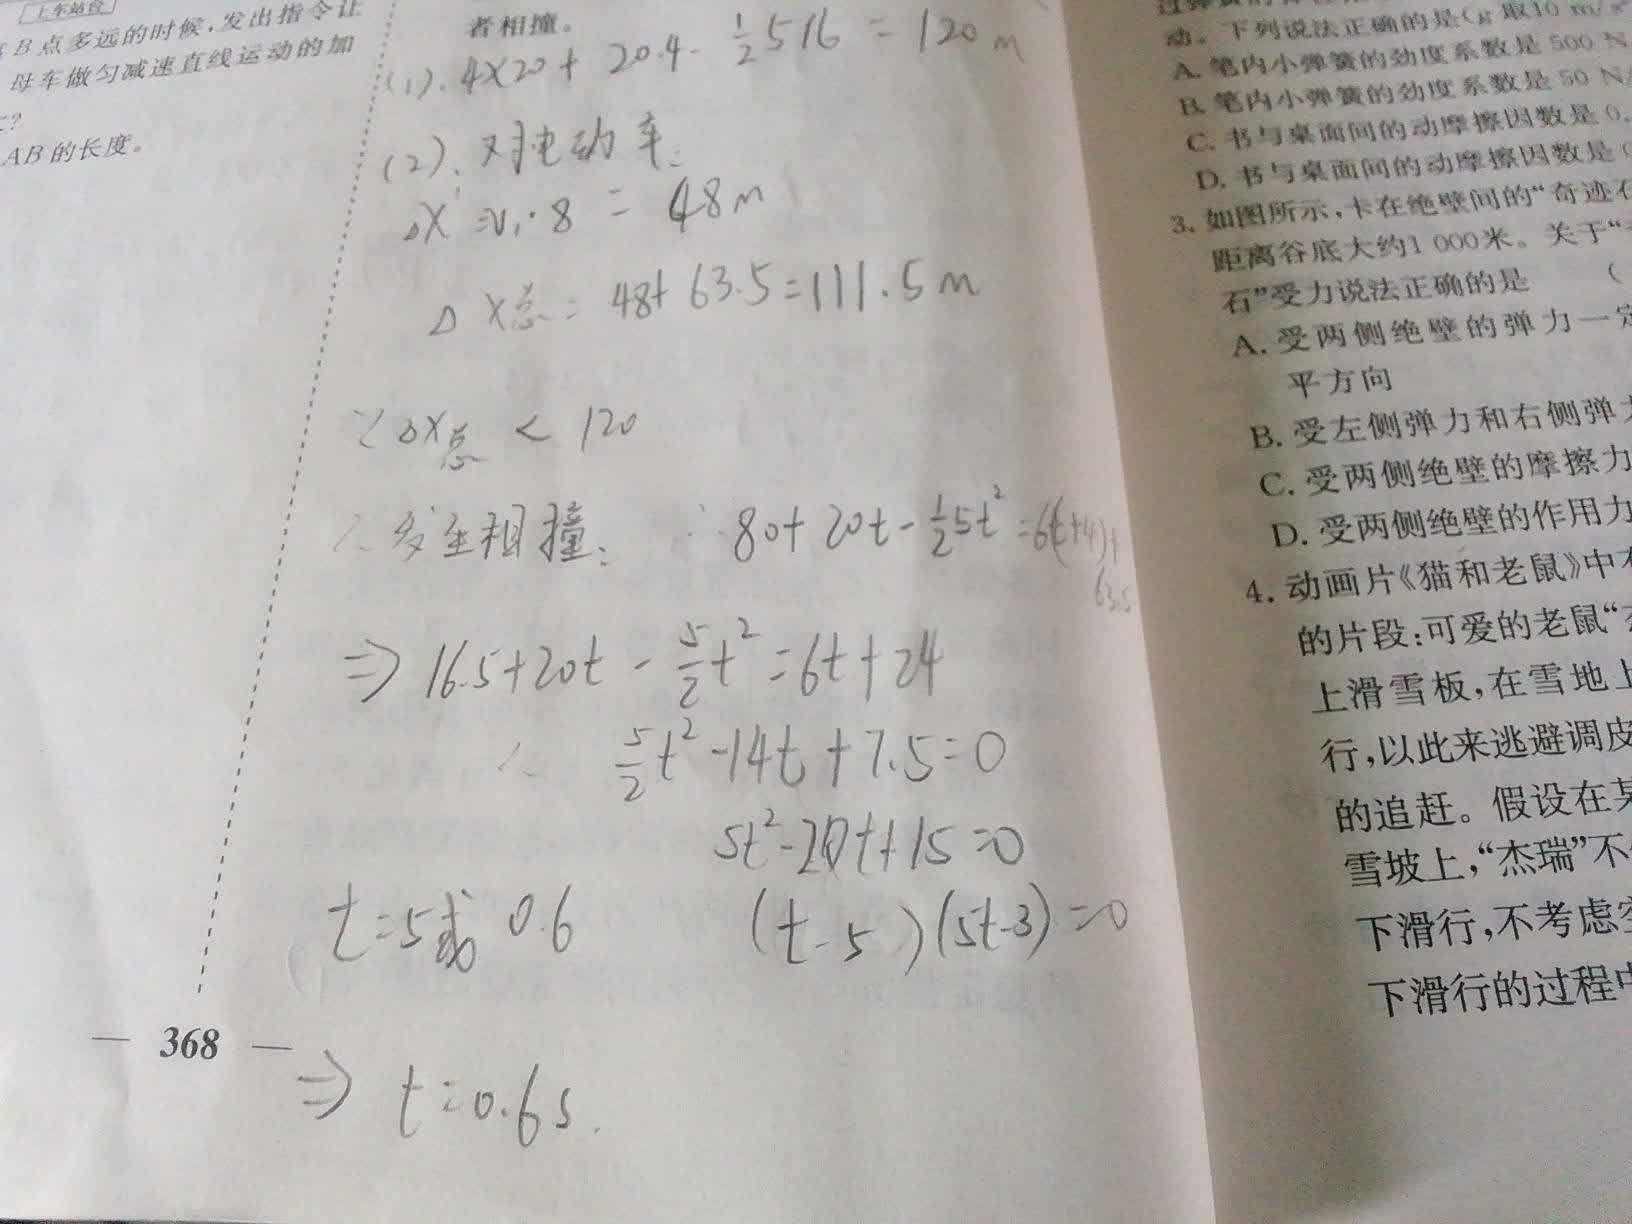 上车站台
B点多远的时候,发出指令让
母车做匀减速直线运动的加
?
AB的长度。
者相撞。
(1). 4×20+ 20·4- 1/2 5 16 = 120 m
(2)、对电动车:
ΔX =v₁·8 = 48m
Δ X总= 48+ 63.5=111.5m
∵ΔX总 < 120
∴发生相撞. ∴80+20t-1/2 5t²=6(t+4)+
63.5
⇒ 16.5+20t - 5/2 t² =6t+24
∴ 5/2 t² -14t+7.5=0
5t²-28t+15=0
t=5或 0.6 (t-5)(5t-3)=0
— 368 —
⇒ t=0.6s.
动。下列说法正确的是(g 取10 m/s²
A. 笔内小弹簧的劲度系数是 500 N
B. 笔内小弹簧的劲度系数是 50 N/
C. 书与桌面间的动摩擦因数是 0.
D. 书与桌面间的动摩擦因数是
3. 如图所示,卡在绝壁间的“奇迹石
距离谷底大约1 000米。关于“
石”受力说法正确的是 (
A. 受两侧绝壁的弹力一定
平方向
B. 受左侧弹力和右侧弹力
C. 受两侧绝壁的摩擦力
D. 受两侧绝壁的作用力
4. 动画片《猫和老鼠》中有
的片段:可爱的老鼠“杰
上滑雪板,在雪地上
行,以此来逃避调皮
的追赶。假设在某
雪坡上,“杰瑞”不
下滑行,不考虑空
下滑行的过程中